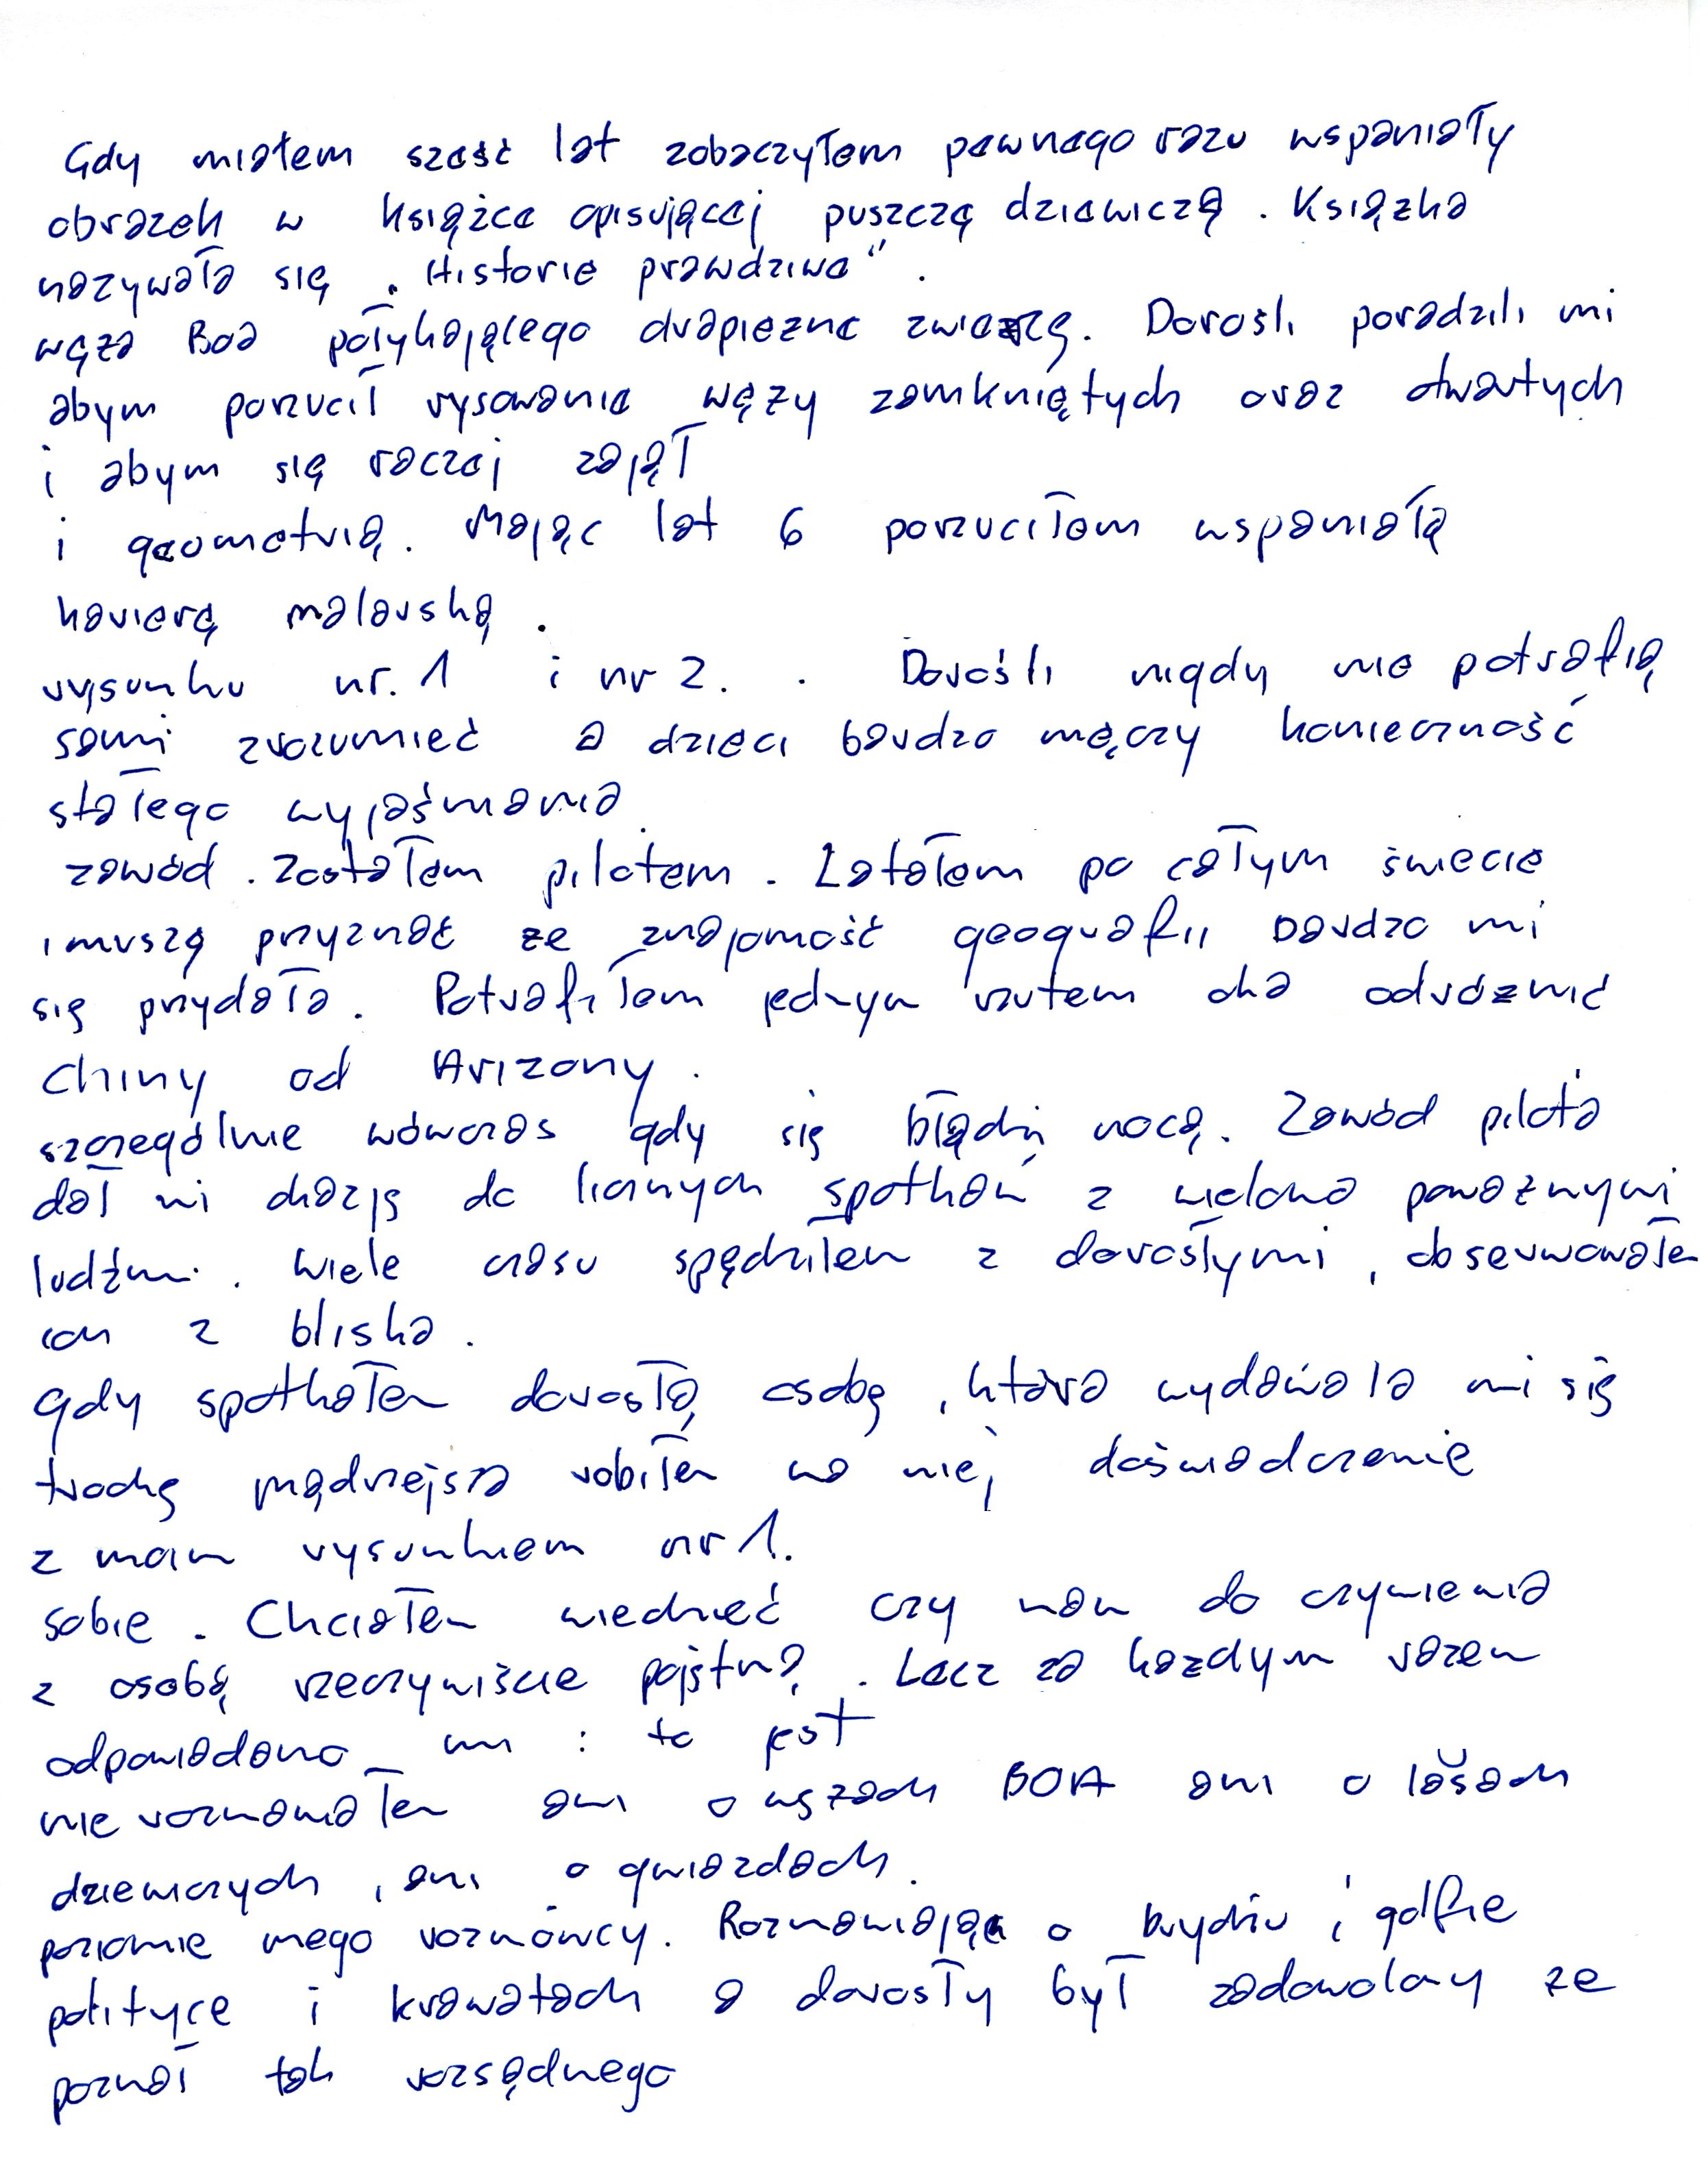 Gdy miałem sześć lat zobaczyłem pewnego razu wspaniały
obrazek w książce opisującej puszczę dziewiczą. Książka
nazywała się „Historie prawdziwe".
węża Boa połykającego drapieżne zwierzę. Dorośli poradzili mi
abym porzucił rysowanie węży zamkniętych oraz otwartych
i abym się raczej zajął
i geometrią. Mając lat 6 porzuciłem wspaniałą
karierę malarską.
rysunku nr. 1 i nr 2. . Dorośli nigdy nie potrafią
sami zrozumieć a dzieci bardzo męczy konieczność
stałego wyjaśniania
zawód. Zostałem pilotem. Latałem po całym świecie
i muszę przyznać że znajomość geografii bardzo mi
się przydała. Potrafiłem jednym rzutem oka odróżnić
Chiny od Arizony.
szczególnie wówczas gdy się błądzi nocą. Zawód pilota
dał mi okazję do licznych spotkań z wieloma poważnymi
ludźmi. Wiele czasu spędziłem z dorosłymi, obserwowałem
ich z bliska.
Gdy spotkałem dorosłą osobę, która wydawała mi się
trochę mądrzejsza robiłem na niej doświadczenie
z moim rysunkiem nr 1.
sobie. Chciałem wiedzieć czy mam do czynienia
z osobą rzeczywiście pojętną. Lecz za każdym razem
odpowiadano mi : to jest
nie rozmawiałem ani o wężach BOA ani o lasach
dziewiczych, ani o gwiazdach.
poziomie mego rozmówcy. Rozmawiając o brydżu i golfie
polityce i krawatach a dorosły był zadowolony że
poznał tak rozsądnego